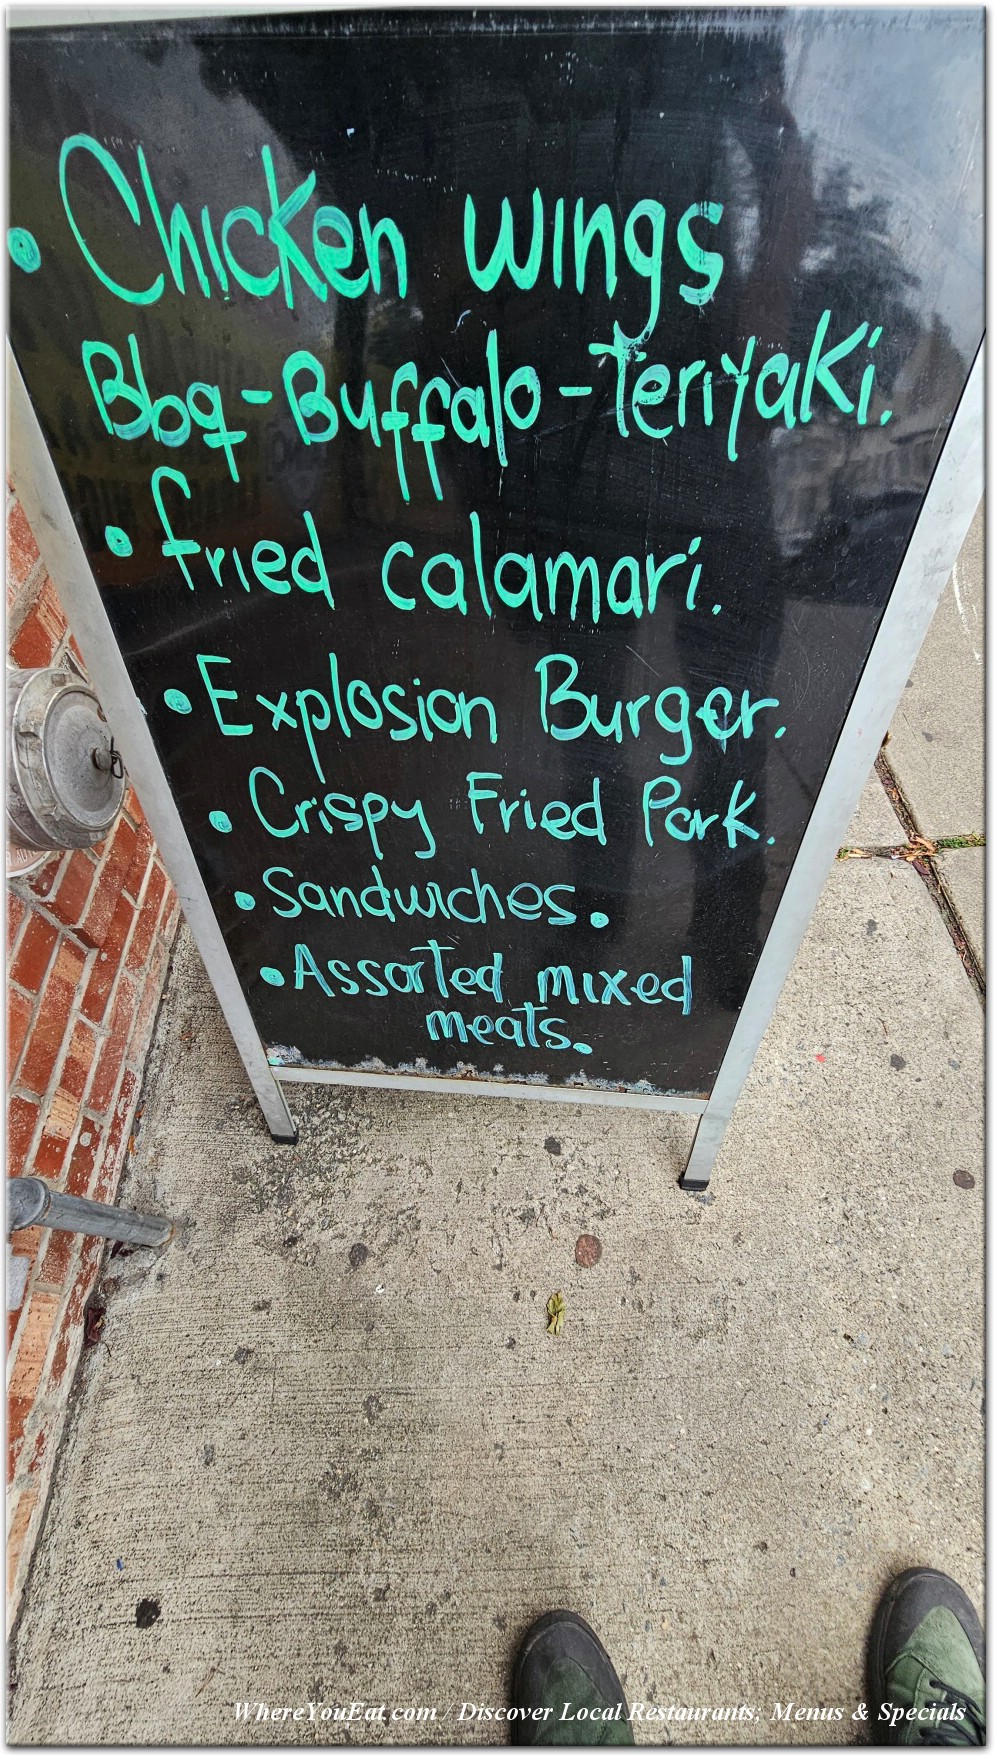 • Chicken wings
Bbq-Buffalo-Teriyaki.
• fried calamari.
• Explosion Burger.
• Crispy Fried Pork.
• Sandwiches.
• Assorted mixed
meats.
WhereYouEat.com / Discover Local Restaurants, Menus & Specials